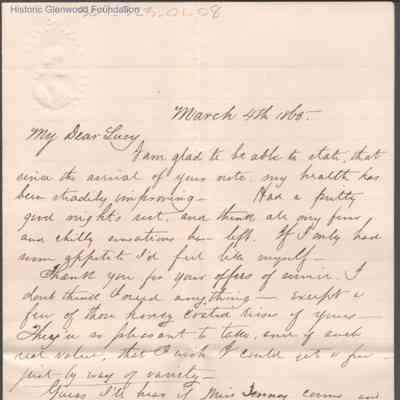 Historic Glenwood Foundation
March 4th 1865.
My Dear Lucy,
I am glad to be able to state, that
since the arrival of your note, my health has
been steadily improving— Had a pretty
good night's rest, and think all my fever
and chilly sensations have left. If I only had
some appetite I'd feel like myself—
Thank you for your offers of service. I
don't think I need anything— except a
few of those honey coated kisses of yours—
They're so pleasant to take, and of such
real value, that I wish I could get a few
just by way of variety—
Guess I'll hear if Miss comes and